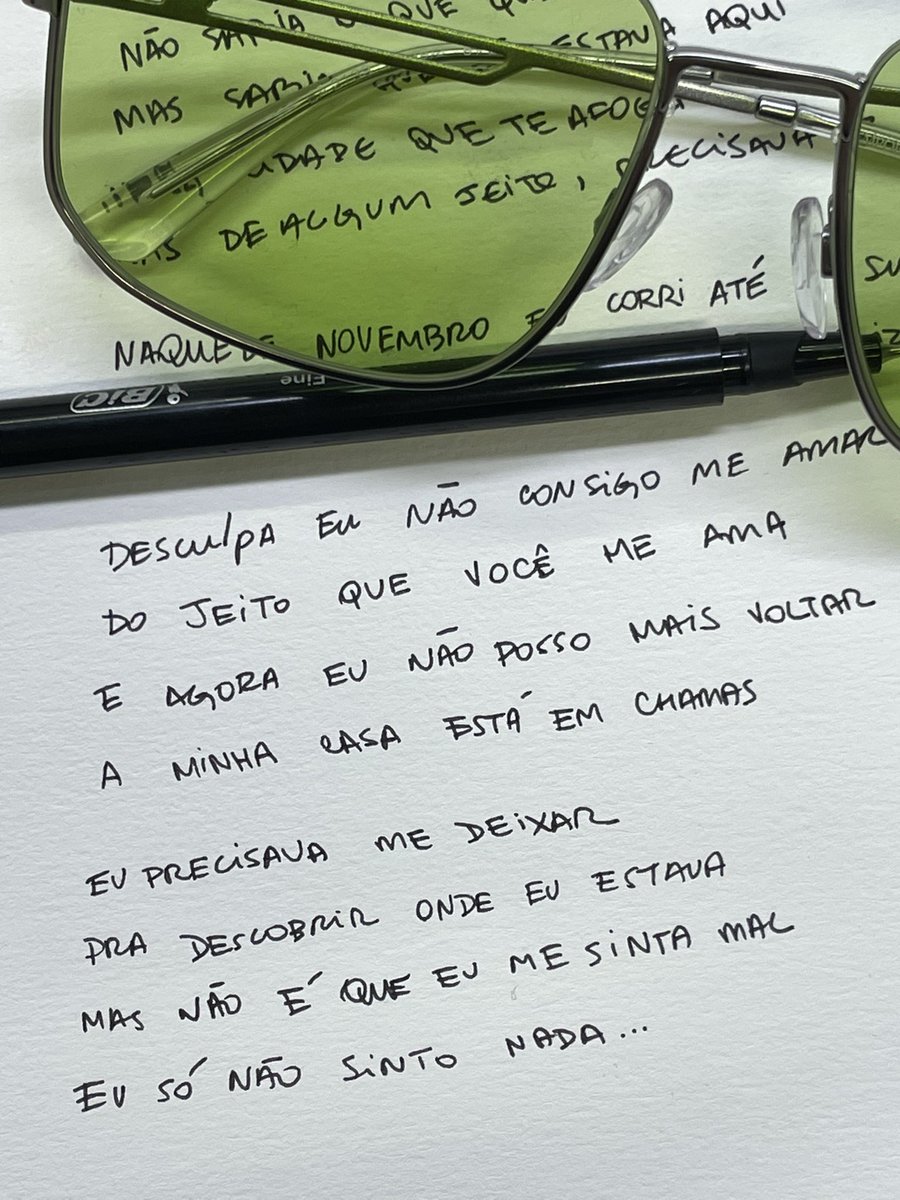 NÃO SABIA O QUE
MAS SABIA ESTAVA AQUI
QUE TE AFOGA
DE ALGUM JEITO, PRECISAVA
NAQUELE NOVEMBRO EU CORRI ATÉ
BIC Fine
DESCULPA EU NÃO CONSIGO ME AMAR
DO JEITO QUE VOCÊ ME AMA
E AGORA EU NÃO POSSO MAIS VOLTAR
A MINHA CASA ESTÁ EM CHAMAS
EU PRECISAVA ME DEIXAR
PRA DESCOBRIR ONDE EU ESTAVA
MAS NÃO É QUE EU ME SINTA MAL
EU SÓ NÃO SINTO NADA...